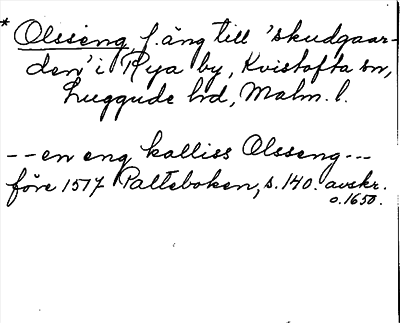 * Olsseng, f. äng till 'skudgaar-
den' i Rya by, Kvistofta sn,
Luggude hd, Malm. l.
-- en eng kalliss Olsseng ---
före 1517 Palteboken, s. 140. avskr.
o. 1650.